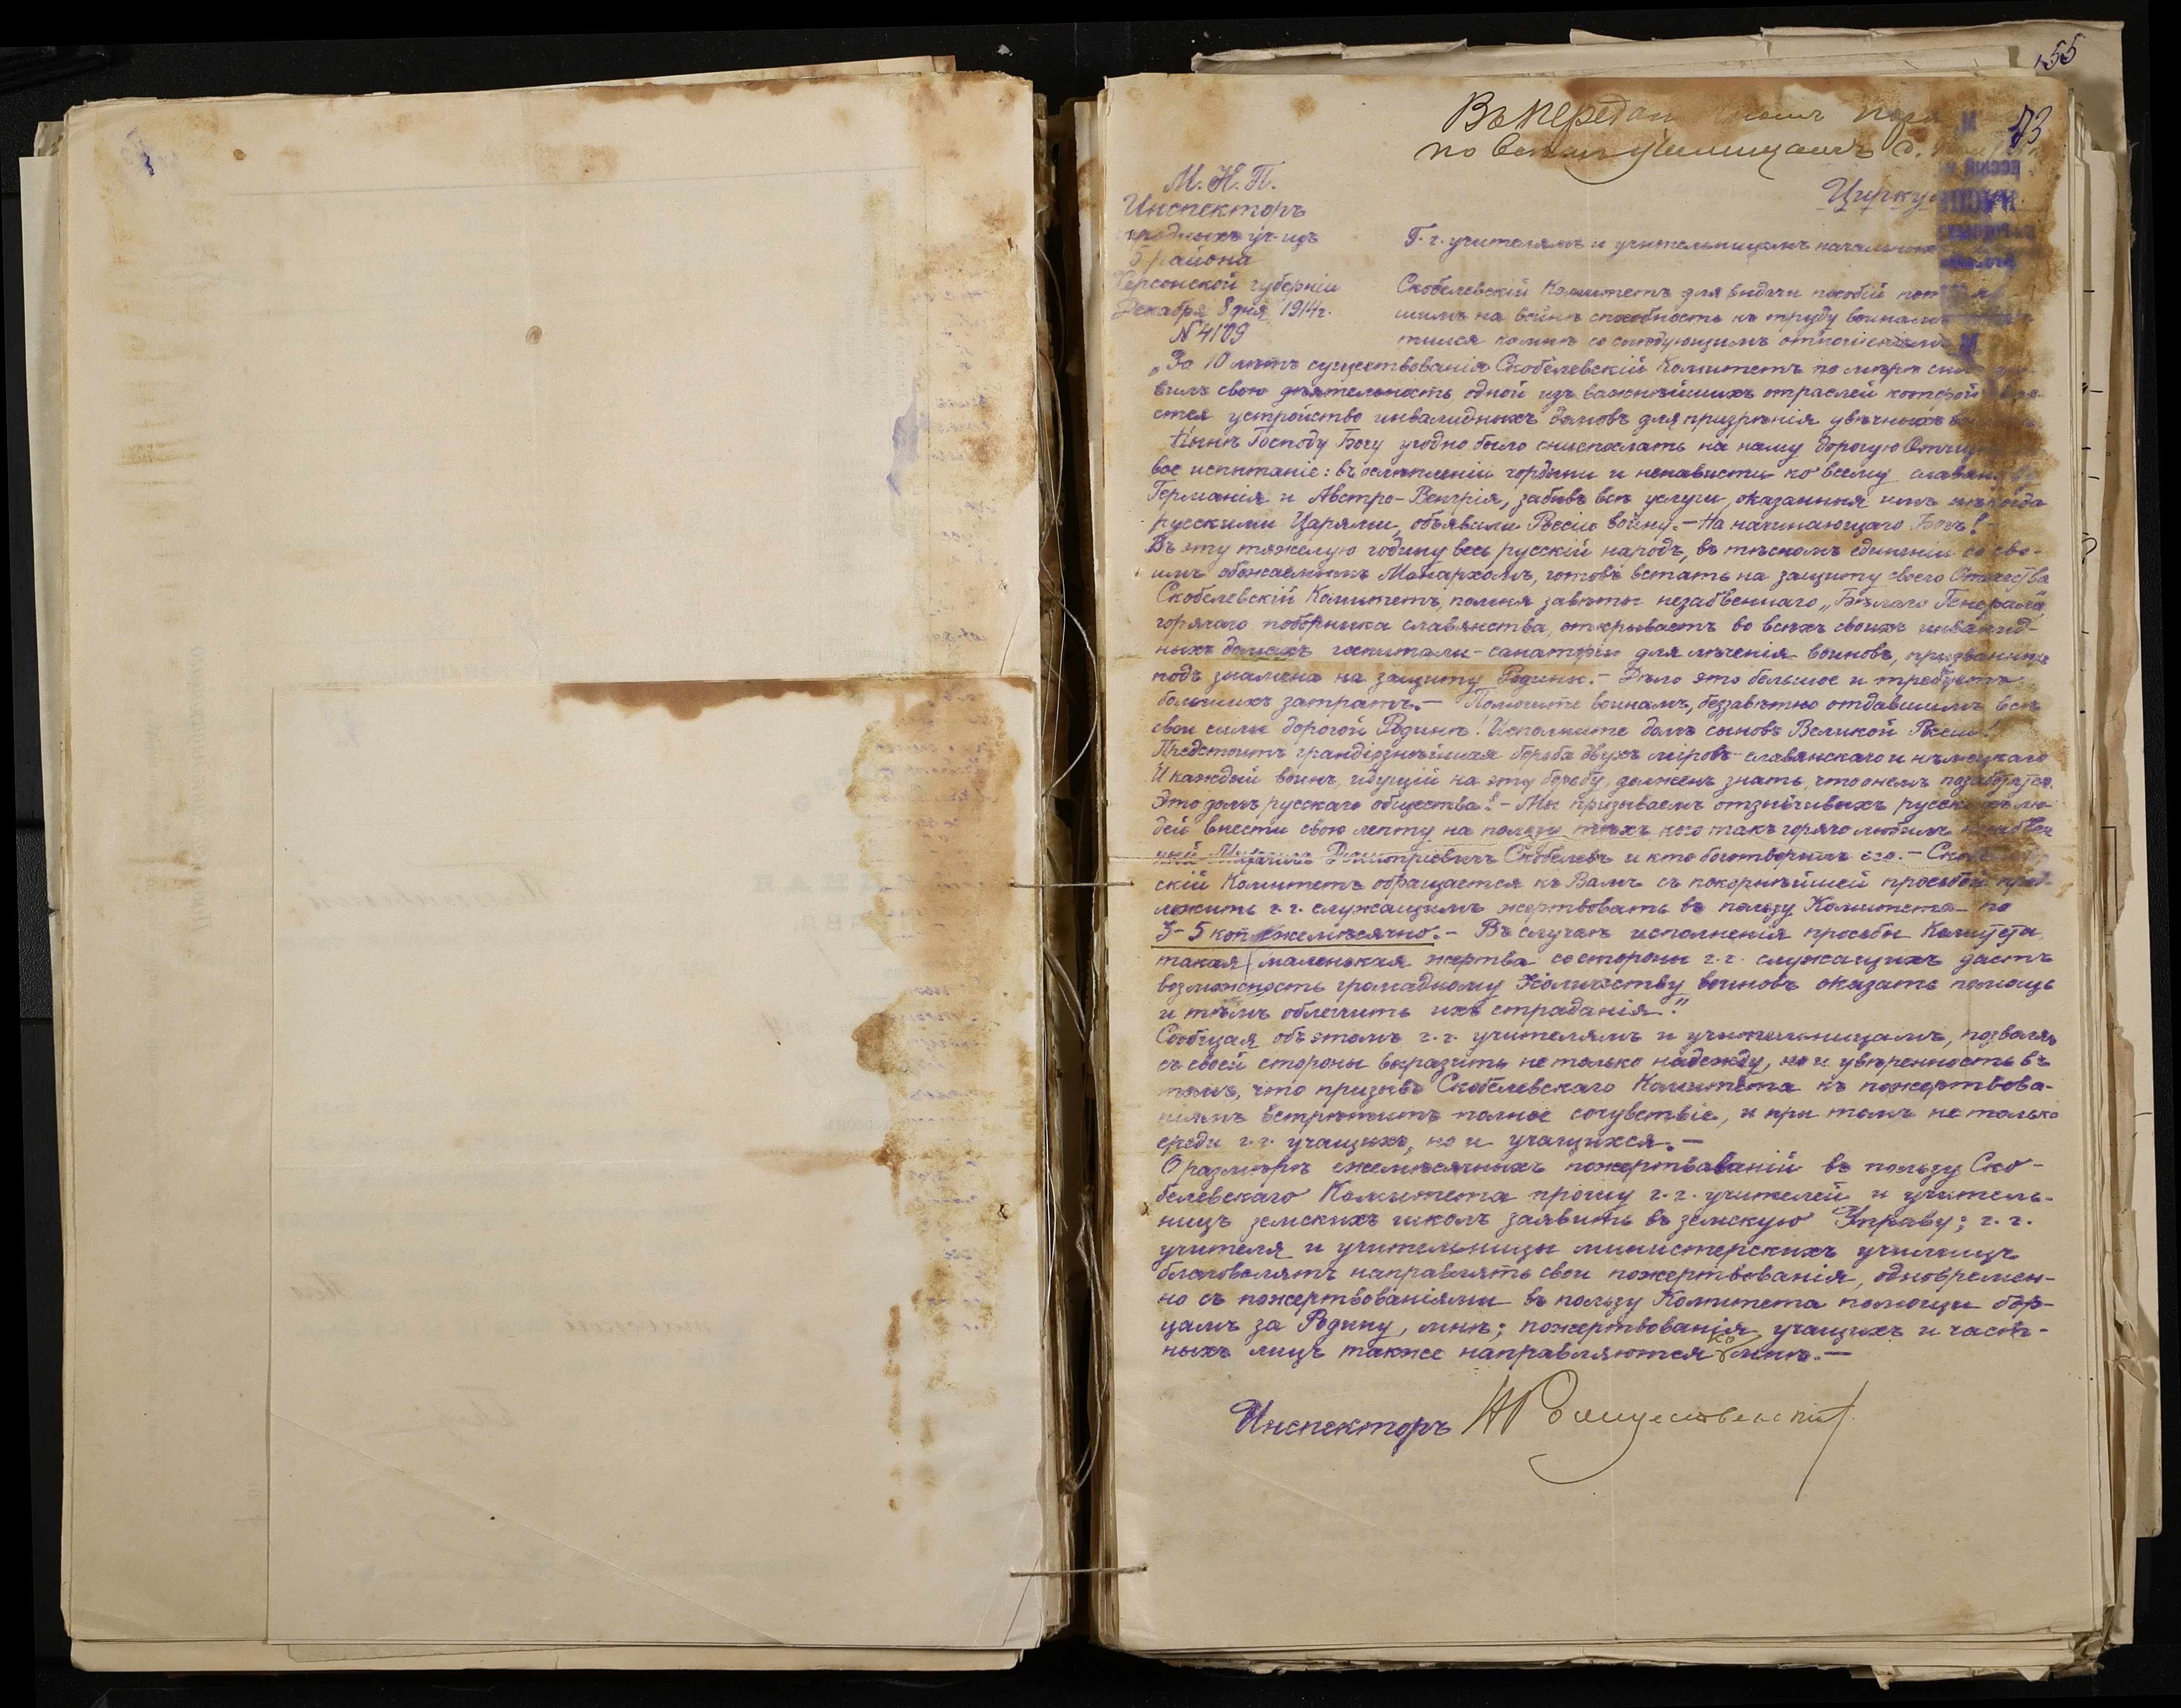 155
73
Въ передан
по всѣмъ училищамъ
М. Н. П.
Инспекторъ
народныхъ уч-щъ
5 района
Херсонской губерніи
Декабря 8 дня 1914 г.
№ 4109
Г. г. учителямъ и учительницамъ
Скобелевскій Комитетъ для выдачи пособій
шимъ на войнѣ способность къ труду воинамъ
тился ко мнѣ со слѣдующимъ отношеніемъ
„За 10 лѣтъ существованія Скобелевскій Комитетъ по мѣрѣ
вилъ свою дѣятельность одной изъ важнѣйшихъ отраслей которой
ется устройство инвалидныхъ домовъ для призрѣнія увѣчныхъ
Нынѣ Господу Богу угодно было ниспослать на нашу дорогую
вое испытаніе: въ ослѣпленіи гордыни и ненависти ко всему
Германія и Австро-Венгрія, забывъ всѣ услуги, оказанныя имъ нѣкогда
русскими Царями, объявили Россіи войну. – На начинающаго Богъ!
Въ эту тяжелую годину весь русскій народъ, въ тѣсномъ единеніи со сво-
имъ обожаемымъ Монархомъ, готовъ встать на защиту своего Отечества
Скобелевскій Комитетъ, помня завѣты незабвеннаго „Бѣлаго Генерала",
горячаго поборника славянства, открываетъ во всѣхъ своихъ инвалид-
ныхъ домахъ госпитали-санаторіи для лѣченія воиновъ, призванныхъ
подъ знамена на защиту Родины. – Дѣло это большое и требуетъ
большихъ затратъ. – Помогите воинамъ, беззавѣтно отдавшимъ всѣ
свои силы дорогой Родинѣ! Исполните долгъ сыновъ Великой Россіи!
Предстоитъ грандіознѣйшая борьба двухъ міровъ – славянскаго и нѣмецкаго
И каждый воинъ, идущій на эту борьбу, долженъ знать, что о немъ позаботятся.
Это долгъ русскаго общества! – Мы призываемъ отзывчивыхъ русскихъ лю-
дей внести свою лепту на пользу тѣхъ кого такъ горячо любилъ незабвен
ный Михаилъ Дмитріевичъ Скобелевъ и кто боготворилъ его. –
скій Комитетъ обращается къ Вамъ съ покорнѣйшей просьбой пред-
ложить г.г. служащимъ жертвовать въ пользу Комитета по
3-5 коп. ежемѣсячно. – Въ случаѣ исполненія просьбы Комитета
такая маленькая жертва со стороны г.г. служащихъ дастъ
возможность громадному количеству воиновъ оказать помощь
и тѣмъ облегчить ихъ страданія!"
Сообщая объ этомъ г.г. учителямъ и учительницамъ, позволяю
съ своей стороны выразить не только надежду, но и увѣренность въ
томъ, что призывъ Скобелевскаго Комитета къ пожертвова-
ніямъ встрѣтитъ полное сочувствіе, и при томъ не только
среди г.г. учащихъ, но и учащихся. –
О размѣрѣ ежемѣсячныхъ пожертвованій въ пользу Ско-
белевскаго Комитета прошу г.г. учителей и учитель-
ницъ земскихъ школъ заявить въ земскую Управу; г.г.
учителя и учительницы министерскихъ училищъ
благоволятъ направлять свои пожертвованія, одновремен-
но съ пожертвованіями въ пользу Комитета помощи бор-
цамъ за Родину, мнѣ; пожертвованія учащихъ и част-
ныхъ лицъ также направляются ко мнѣ. –
Инспекторъ